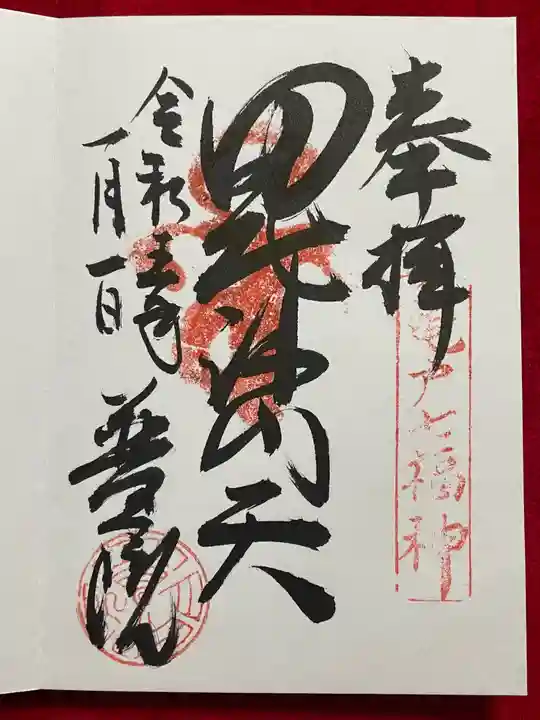 奉拝
亀戸七福神
毘沙門天
令和
一月一日
普門院